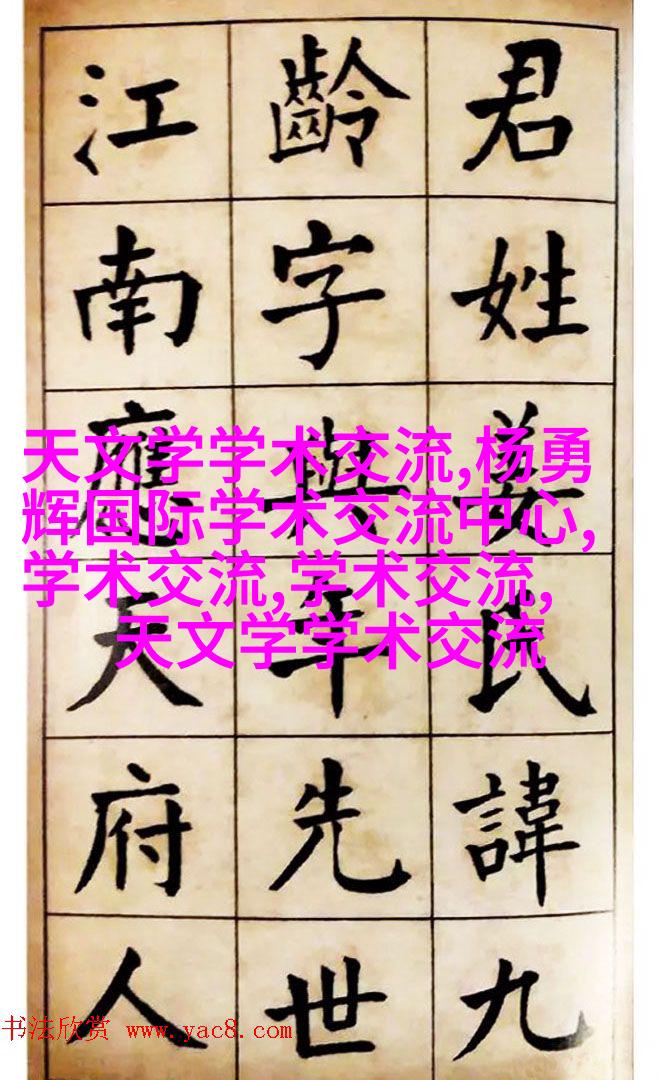 君姓姜氏諱九
齡字與年先世
江南應天府人
天文学学术交流,杨勇
辉国际学术交流中心,
学术交流,学术交流,
天文学学术交流
书法欣赏 www.yac8.com